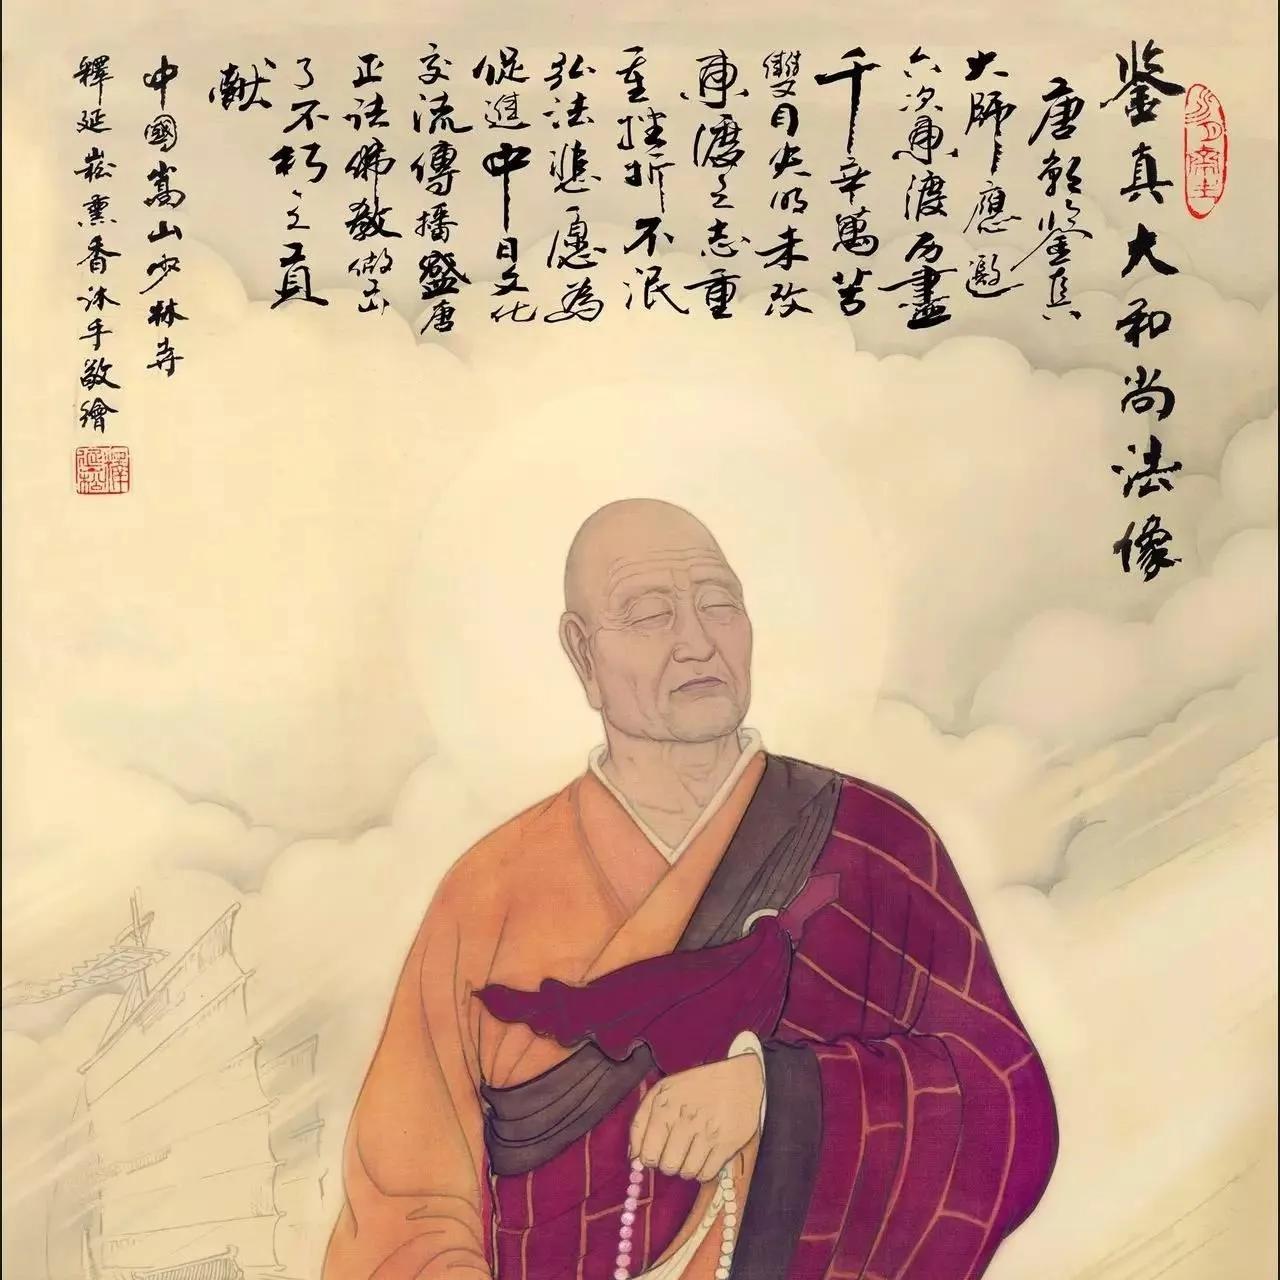 鉴真大和尚法像
唐朝鉴真
大师应邀
六次東渡历盡
千辛萬苦
雙目失明未改
東渡之志重
重挫折不泯
弘法悲愿為
促進中日文化
交流傳播盛唐
正法佛教做出
了不朽之貢
獻
中國嵩山少林寺
釋延崧熏香沐手敬繪